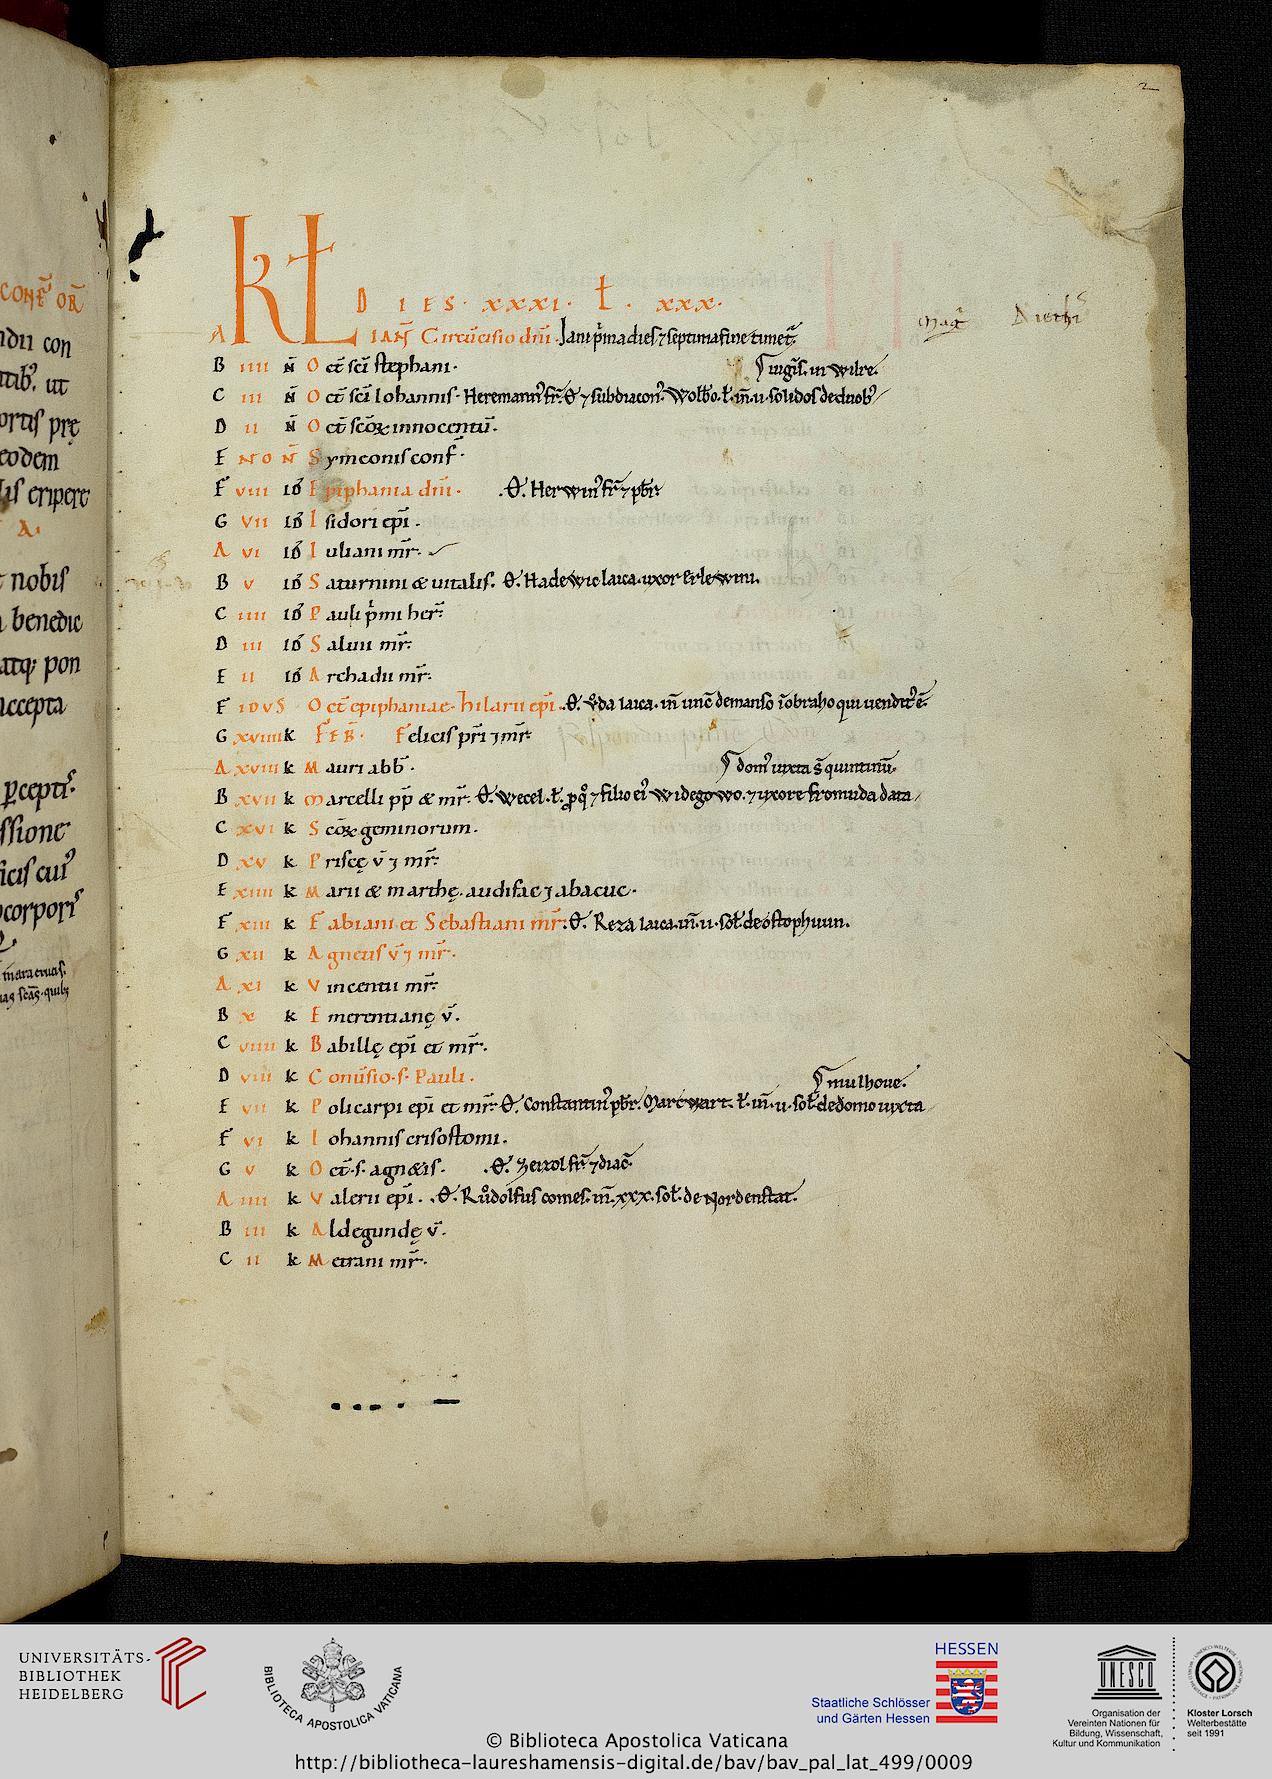 2
CONF̄ OR̄
ndii con
ortis pre
eodem
A.
nobis
benedic
pon
accepta
corporis
KL D I E S · xxxi · L · xxx ·
Mag̃ Dieth̃
A IAN̄ Circūcisio dn̄i · Iani p̄ma dies ⁊ septima fine timet̃
B iiii N̄ Oct̄ sc̄i stephani ·
uirgīs. in wilre.
C iii N̄ Oct̄ sc̄i Iohannis · Heremann⁹ fr̄. ⁊ subdiacon⁹. solidos de duob⁹
D ii N̄ Oct̄ sc̄oꝝ innocentū.
E NON̄ Symeonis conf̄ ·
F viii ID Epiphania dn̄i · O. Herwin⁹ fr̄ ⁊ pb̄r.
G vii ID Isidori ep̄i ·
A vi ID Iuliani mr̄ ·
B v ID Saturnini & uitalis. O. Hadewic laica. uxor Erlewini.
C iiii ID Pauli p̄mi her̄ ·
D iii ID Saluii mr̄ ·
E ii ID Archadii mr̄ ·
F IDVS Oct̄ epiphaniae · hilarii ep̄i · O. Oda laica. in̄ unc̄ de manso
G xviiii k FEB̄ · Felicis pr̄i ⁊ mr̄
A xviii k Mauri abb̄ ·
dom⁹ iuxta s̄ quintinū.
B xvii k Marcelli pp̄ & mr̄ · O. Wecel. ⁊ filio ei⁹ widegowo. ⁊ uxore fromuda data
C xvi k Sc̄oꝝ geminorum.
D xv k Priscę v̄ ⁊ mr̄ ·
E xiiii k Marii & marthę. audifac ⁊ abacuc ·
F xiii k Fabiani et Sebastiani mr̄ · O. Reza laica. in̄. u. sol̄. de ostophuun.
G xii k Agnetis v̄ ⁊ mr̄ ·
A xi k Vincentii mr̄ ·
B x k Emerentianę v̄ ·
C viiii k Babillę ep̄i et mr̄ ·
D viii k Conūsio · s · Pauli ·
mulhoue.
E vii k Policarpi ep̄i et mr̄ · O. Constantin⁹ pb̄r. Marcwart. in̄. u. sol̄. de domo iuxta
F vi k Iohannis crisostomi ·
G v k Oct̄ · s · agn&is · O. Zeizolf fr̄ ⁊ diac̄.
A iiii k Valerii ep̄i · O. Ruͦdolfus comes. in̄. xxx. sol̄. de Nordenstat.
B iii k Aldegundę v̄ ·
C ii k Metrani mr̄ ·
UNIVERSITÄTS-
BIBLIOTHEK
HEIDELBERG
BIBLIOTECA APOSTOLICA VATICANA
HESSEN
Staatliche Schlösser
und Gärten Hessen
UNESCO
Organisation der
Vereinten Nationen für
Bildung, Wissenschaft,
Kultur und Kommunikation
Kloster Lorsch
Welterbestätte
seit 1991
© Biblioteca Apostolica Vaticana
http://bibliotheca-laureshamensis-digital.de/bav/bav_pal_lat_499/0009